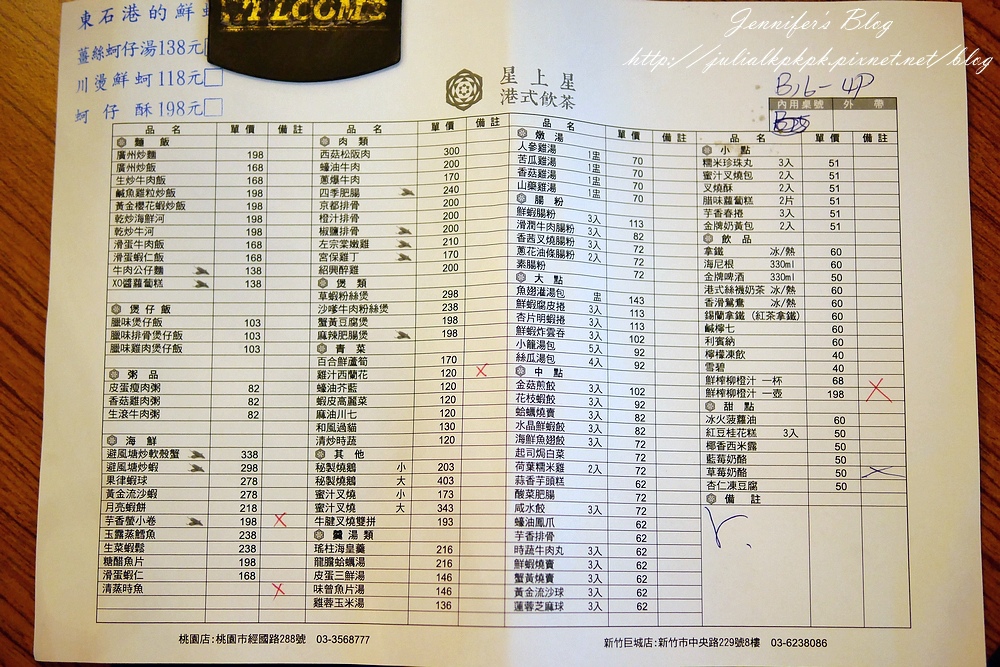 東石港的鮮
薑絲蚵仔湯138元
川燙鮮蚵118元
蚵仔酥198元
WELCOME
Jennifer's Blog
http://julialkpkpk.pixnet.net/blog
星上星
港式飲茶
B16-4P
內用桌號 外帶
品名 單價 備註
麵飯
廣州炒麵 198
廣州炒飯 168
生炒牛肉飯 168
鹹魚雞粒炒飯 198
黃金櫻花蝦炒飯 198
乾炒海鮮河 198
乾炒牛河 198
滑蛋牛肉飯 168
滑蛋蝦仁飯 168
牛肉公仔麵 138
XO醬蘿蔔糕 138
煲仔飯
臘味煲仔飯 103
臘味排骨煲仔飯 103
臘味雞肉煲仔飯 103
粥品
皮蛋瘦肉粥 82
香菇雞肉粥 82
生滾牛肉粥 82
海鮮
避風塘炒軟殼蟹 338
避風塘炒蝦 298
果律蝦球 278
黃金流沙蝦 278
月亮蝦餅 218
芋香螢小卷 198
玉露蒸鱈魚 238
生菜蝦鬆 238
糖醋魚片 198
滑蛋蝦仁 168
清蒸時魚
品名 單價 備註
肉類
西菇松阪肉 300
蠔油牛肉 200
蔥爆牛肉 170
四季肥腸 240
京都排骨 200
橙汁排骨 200
椒鹽排骨 200
左宗棠嫩雞 210
宮保雞丁 170
紹興醉雞 200
煲類
草蝦粉絲煲 298
沙嗲牛肉粉絲煲 238
蟹黃豆腐煲 198
麻辣肥腸煲 198
青菜
百合鮮蘆筍 170
雞汁西蘭花 120
蠔油芥藍 120
蝦皮高麗菜 120
麻油川七 120
和風過貓 130
清炒時蔬 120
其他
秘製燒鵝 小 203
秘製燒鵝 大 403
蜜汁叉燒 小 173
蜜汁叉燒 大 343
牛腱叉燒雙拼 193
羹湯類
瑤柱海皇羹 216
龍膽蛤蠣湯 216
皮蛋三鮮湯 146
味曾魚片湯 146
雞蓉玉米湯 136
品名 單價 備註
燉湯
人參雞湯 1盅 70
苦瓜雞湯 1盅 70
香菇雞湯 1盅 70
山藥雞湯 1盅 70
腸粉
鮮蝦腸粉 3入 113
滑潤牛肉腸粉 3入 82
香茜叉燒腸粉 3入 72
蔥花油條腸粉 2入 72
素腸粉 72
大點
魚翅灌湯包 盅 143
鮮蝦腐皮捲 3入 113
杏片明蝦捲 3入 113
鮮蝦炸雲吞 3入 102
小龍湯包 5入 92
絲瓜湯包 4入 92
中點
金菇煎餃 3入 102
花枝蝦餃 3入 92
蛤蠣燒賣 3入 82
水晶鮮蝦餃 3入 82
海鮮魚翅餃 3入 72
起司焗白菜 72
荷葉糯米雞 2入 72
蒜香芋頭糕 62
酸菜肥腸 72
咸水餃 3入 72
蠔油鳳爪 62
芋香排骨 62
時蔬牛肉丸 3入 62
鮮蝦燒賣 3入 62
蟹黃燒賣 3入 62
黃金流沙球 3入 62
蓮蓉芝麻球 3入 62
品名 單價 備註
小點
糯米珍珠丸 3入 51
蜜汁叉燒包 2入 51
叉燒酥 2入 51
腊味蘿蔔糕 2片 51
芋香春捲 3入 51
金牌奶黃包 2入 51
飲品
拿鐵 冰/熱 60
海尼根 330ml 60
金牌啤酒 330ml 50
港式絲襪奶茶 冰/熱 60
香滑鴛鴦 冰/熱 60
錫蘭拿鐵(紅茶拿鐵) 60
鹹檸七 60
利賓納 60
檸檬凍飲 40
雪碧 40
鮮榨柳橙汁 一杯 68
鮮榨柳橙汁 一壺 198
甜點
冰火菠蘿油 60
紅豆桂花糕 3入 50
椰香西米露 50
藍莓奶酪 50
草莓奶酪 50
杏仁凍豆腐 50
備註
桃園店:桃園市經國路288號 03-3568777
新竹巨城店:新竹市中央路229號8樓 03-6238086